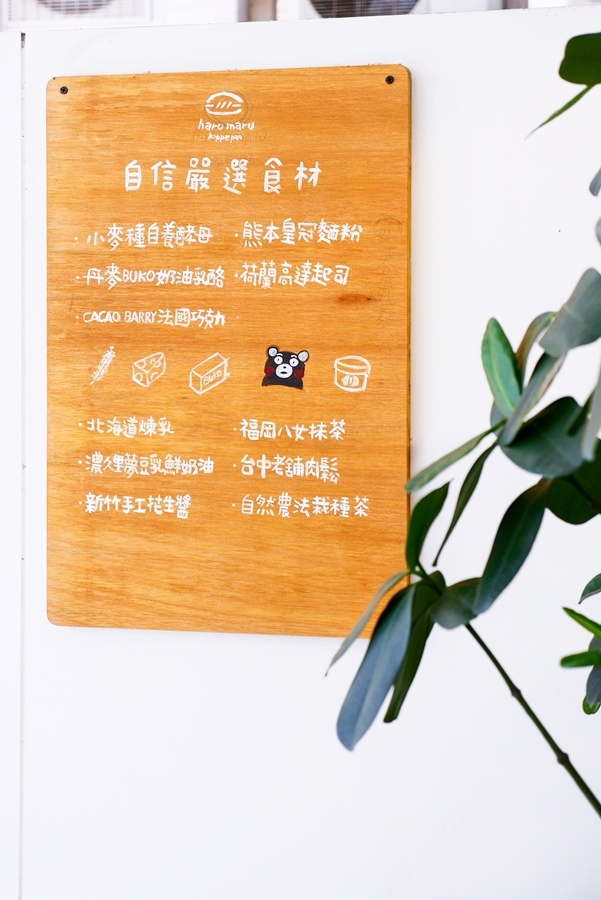 haru maru
koppepan
自信嚴選食材
·小麥種自養酵母 ·熊本皇冠麵粉
·丹麥BUKO奶油乳酪 ·荷蘭高達起司
·CACAO BARRY法國巧克力
BUKO
·北海道煉乳 ·福岡八女抹茶
·濃久里夢豆乳鮮奶油 ·台中老舖肉鬆
·新竹手工花生醬 ·自然農法栽種茶